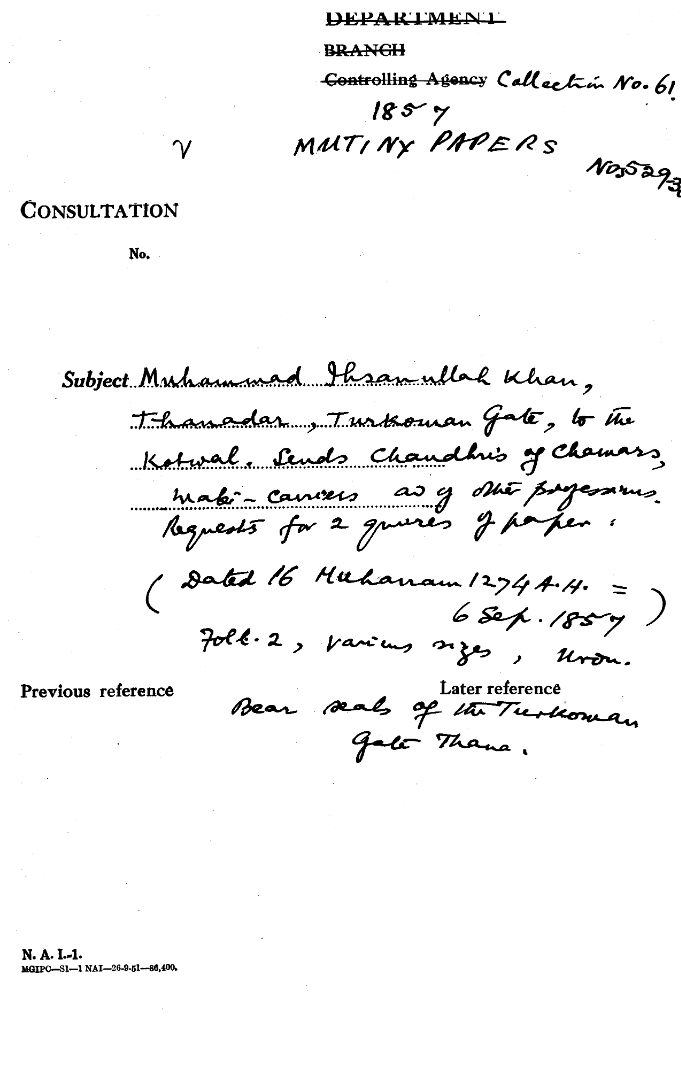 DEPARTMENT
BRANCH
Controlling Agency Collection No. 61.
1857
V MUTINY PAPERS
Nos 529-3
CONSULTATION
No.
Subject Muhammad Ihsanullah Khan,
Thanadar, Turkoman Gate, to the
Kotwal. Sends Chaudhris of Chamars,
carriers as of other professions.
Requests for 2 quires of paper.
(Dated 16 Muharram 1274 A.H. =
6 Sep. 1857)
Foll. 2, various sizes, Urdu.
Previous reference Later reference
Bear seals of the Turkoman
Gate Thana.
N. A. I.-1.
MGIPC—S1—1 NAI—26-9-51—86,400.